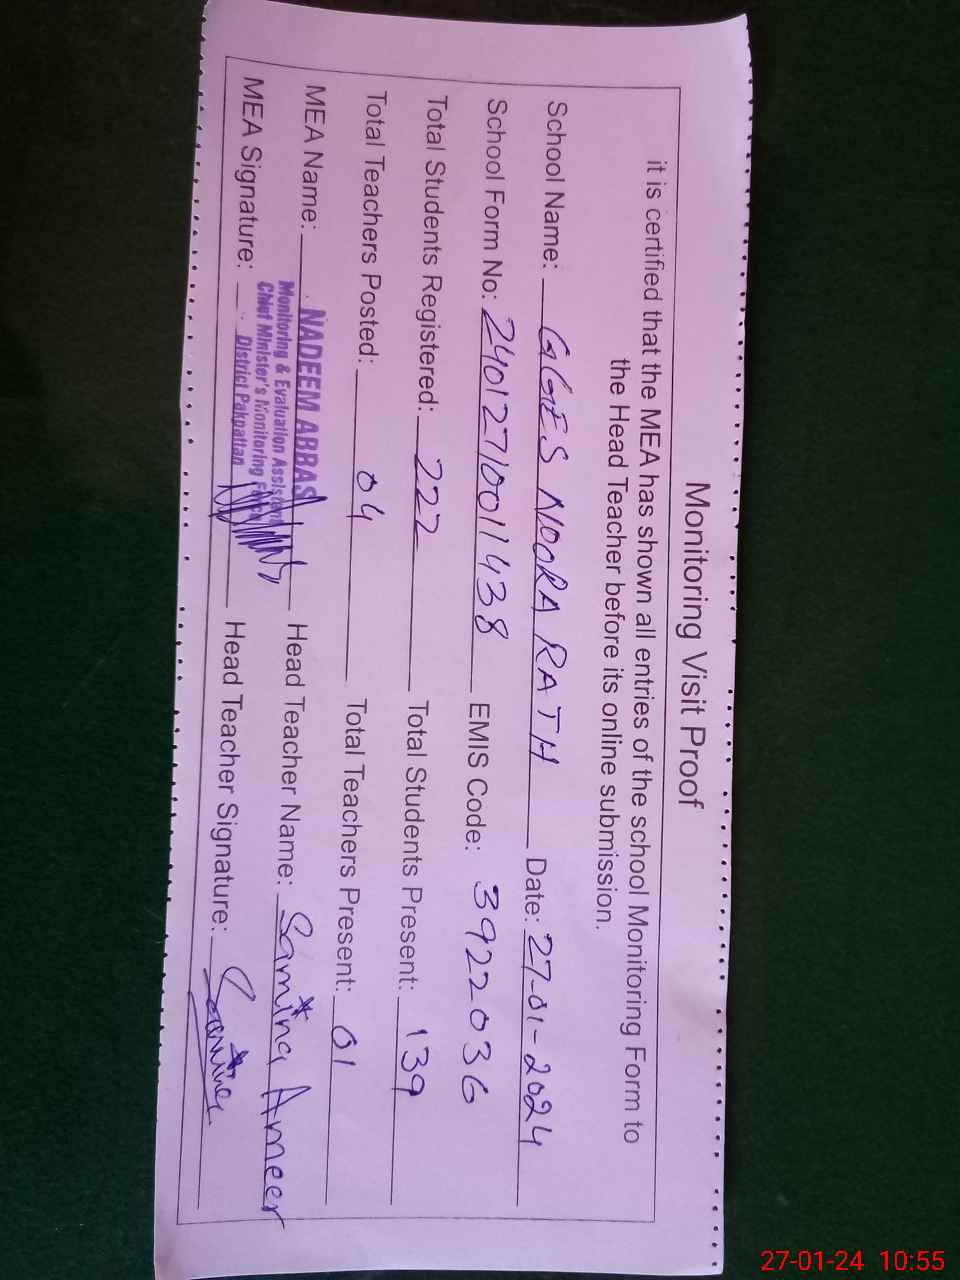 Monitoring Visit Proof
it is certified that the MEA has shown all entries of the school Monitoring Form to
the Head Teacher before its online submission.
School Name: GGES NOORA RATH Date: 27-01-2024
School Form No: 24012710011438 EMIS Code: 3922036
Total Students Registered: 222 Total Students Present: 139
Total Teachers Posted: 04 Total Teachers Present: 01
MEA Name: NADEEM ABBAS Head Teacher Name: Samina Ameer
Monitoring & Evaluation Assistant
Chief Minister's Monitoring Force
MEA Signature: District Pakpattan Head Teacher Signature: Samina
27-01-24 10:55